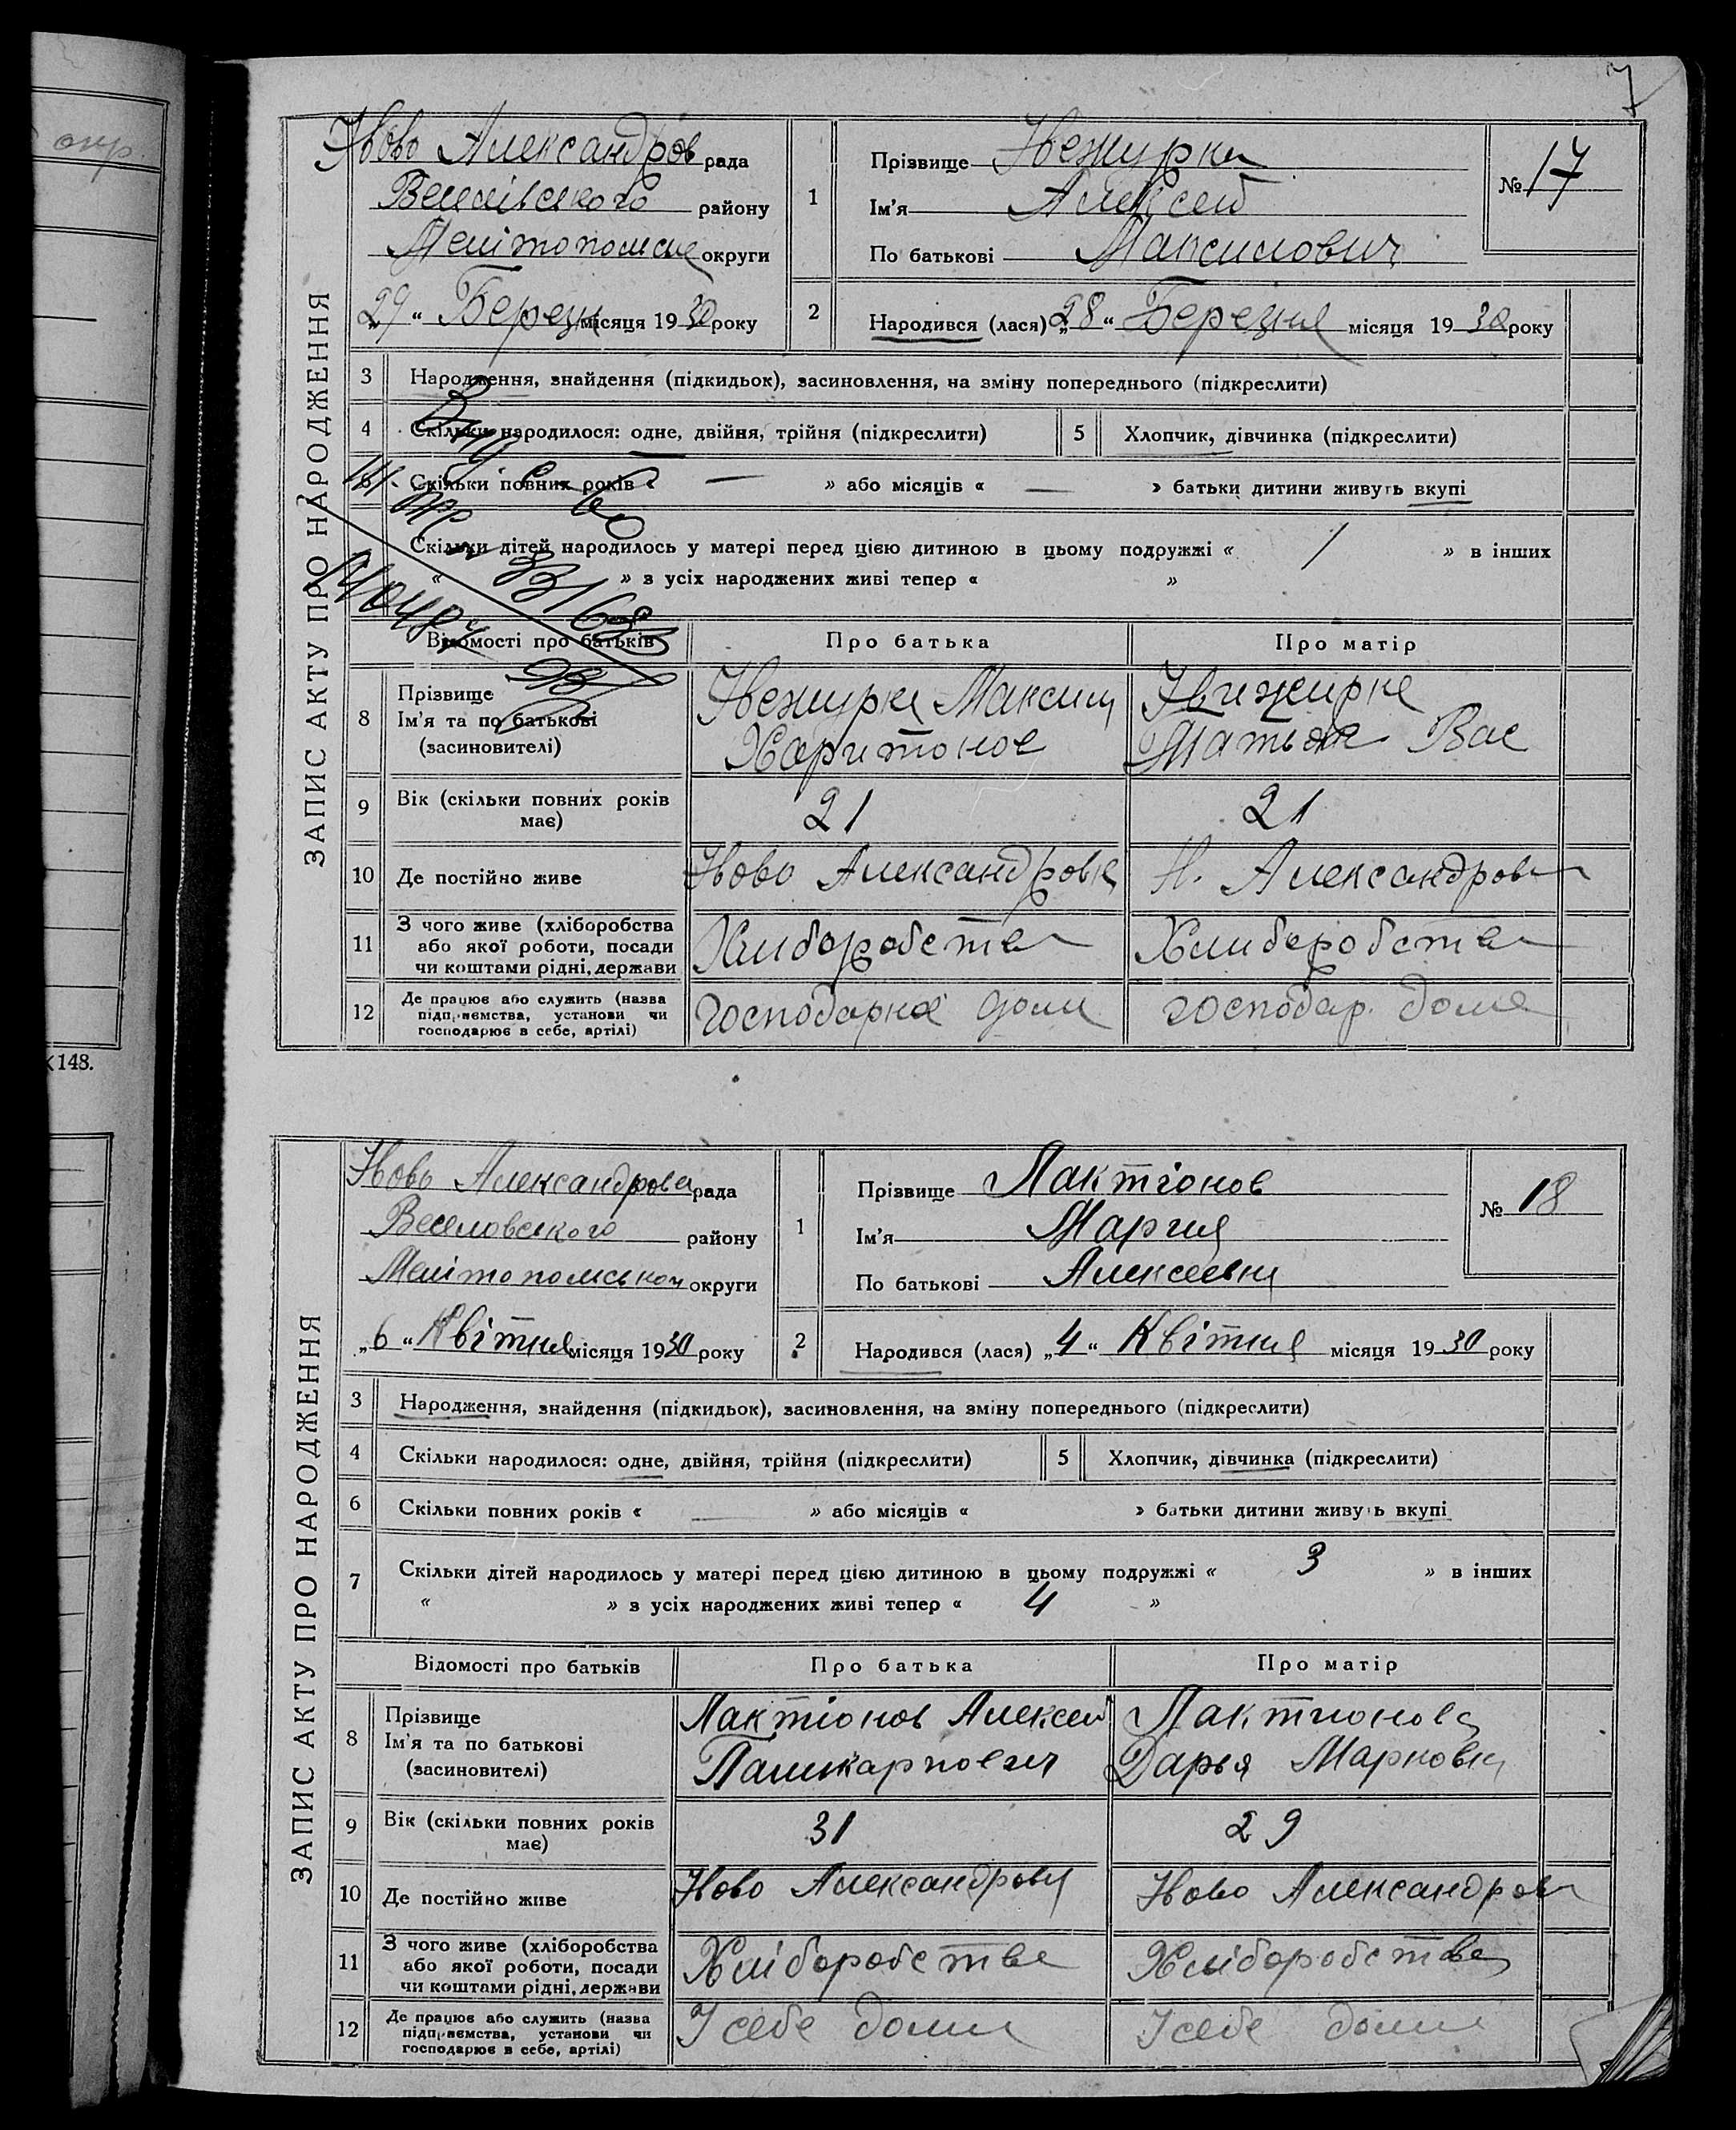 окр.
К148.
7
ЗАПИС АКТУ ПРО НАРОДЖЕННЯ
Ново Александров рада
Веселівського району
Мелітопольск округи
„29“ Березня місяця 1930 року
1
Прізвище
Ім'я Алексей
По батькові Максимович
№ 17
2
Народився (лася) „28“ Березня місяця 1930 року
3 Народження, знайдення (підкидьок), засиновлення, на зміну попереднього (підкреслити)
4 Скільки народилося: одне, двійня, трійня (підкреслити)
5 Хлопчик, дівчинка (підкреслити)
Скільки повних років « — » або місяців « — » батьки дитини живуть вкупі
Скільки дітей народилось у матері перед цією дитиною в цьому подружжі « / » в інших
« » з усіх народжених живі тепер « »
Відомості про батьків
Про батька
Про матір
8
Прізвище
Ім'я та по батькові
(засиновителі)
Максим
Харитонов
Татьяна Вас
9 Вік (скільки повних років має)
21
21
10 Де постійно живе
Ново Александровка
Н. Александровка
11 З чого живе (хліборобства
або якої роботи, посади
чи коштами рідні, держави
Хлиборобства
Хлиборобства
12 Де працює або служить (назва
підприємства, установи чи
господарює в себе, артілі)
господар. дома
ЗАПИС АКТУ ПРО НАРОДЖЕННЯ
Ново Александровка рада
Веселовського району
Мелітопольськой округи
„6“ Квітня місяця 1930 року
1
Прізвище Лактіонов
Ім'я Мария
По батькові Алексеевна
№ 18
2
Народився (лася) „4“ Квітня місяця 1930 року
3 Народження, знайдення (підкидьок), засиновлення, на зміну попереднього (підкреслити)
4 Скільки народилося: одне, двійня, трійня (підкреслити)
5 Хлопчик, дівчинка (підкреслити)
6 Скільки повних років « — » або місяців « » батьки дитини живуть вкупі
7 Скільки дітей народилось у матері перед цією дитиною в цьому подружжі « 3 » в інших
« » з усіх народжених живі тепер « 4 »
Відомості про батьків
Про батька
Про матір
8
Прізвище
Ім'я та по батькові
(засиновителі)
Лактіонов Алексей
Лактионова
Дарья Марковна
9 Вік (скільки повних років має)
31
29
10 Де постійно живе
Ново Александровка
Ново Александровка
11 З чого живе (хліборобства
або якої роботи, посади
чи коштами рідні, держави
Хліборобства
Хліборобства
12 Де працює або служить (назва
підприємства, установи чи
господарює в себе, артілі)
У себе дома
У себе дома